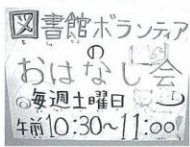 図書館ボランティア
の
おはなし会
◎毎週土曜日
午前10:30~11:00